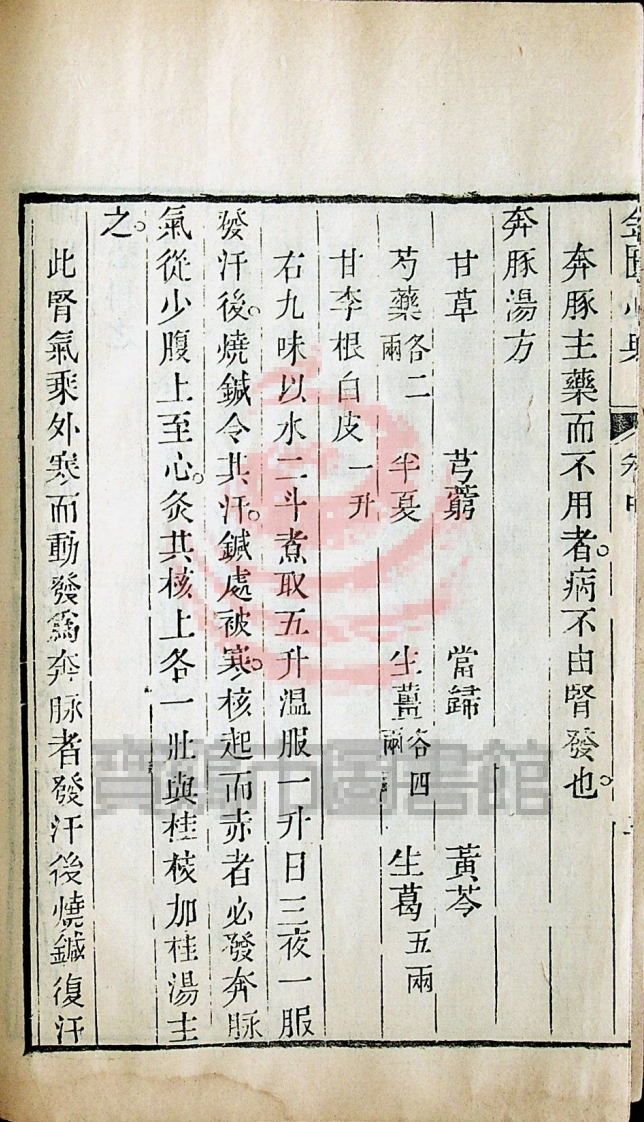 金匱心典 卷中
奔豚主藥而不用者。病不由腎發也。
奔豚湯方
甘草 芎藭 當歸 黃芩
芍藥各二兩 半夏 生薑各四兩 生葛五兩
甘李根白皮一升
右九味以水二斗煮取五升溫服一升日三夜一服
發汗後。燒鍼令其汗。鍼處被寒。核起而赤者必發奔豚
氣從少腹上至心。灸其核上各一壯與桂核加桂湯主
之。
此腎氣乘外寒而動發爲奔豚者發汗後燒鍼復汗
寶雞市圖書館